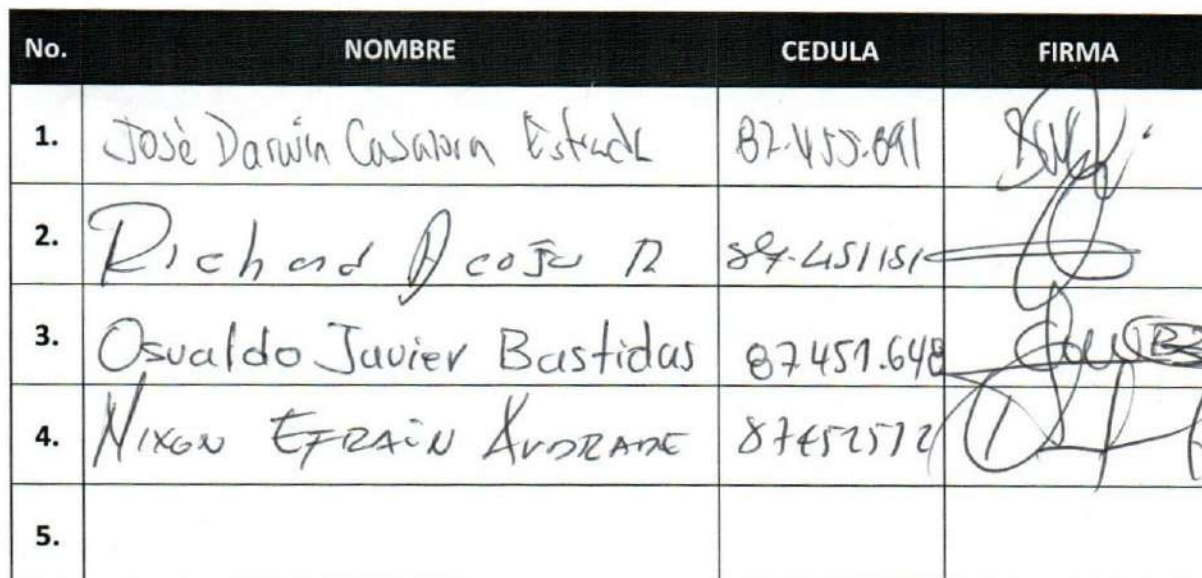 No. NOMBRE CEDULA FIRMA
1. José Darwin Estrada
2. Richard Acosta R 87.451151
3. Osvaldo Javier Bastidas 87451.648
4. NIXON EFRAÍN ANDRADE 87452512
5.